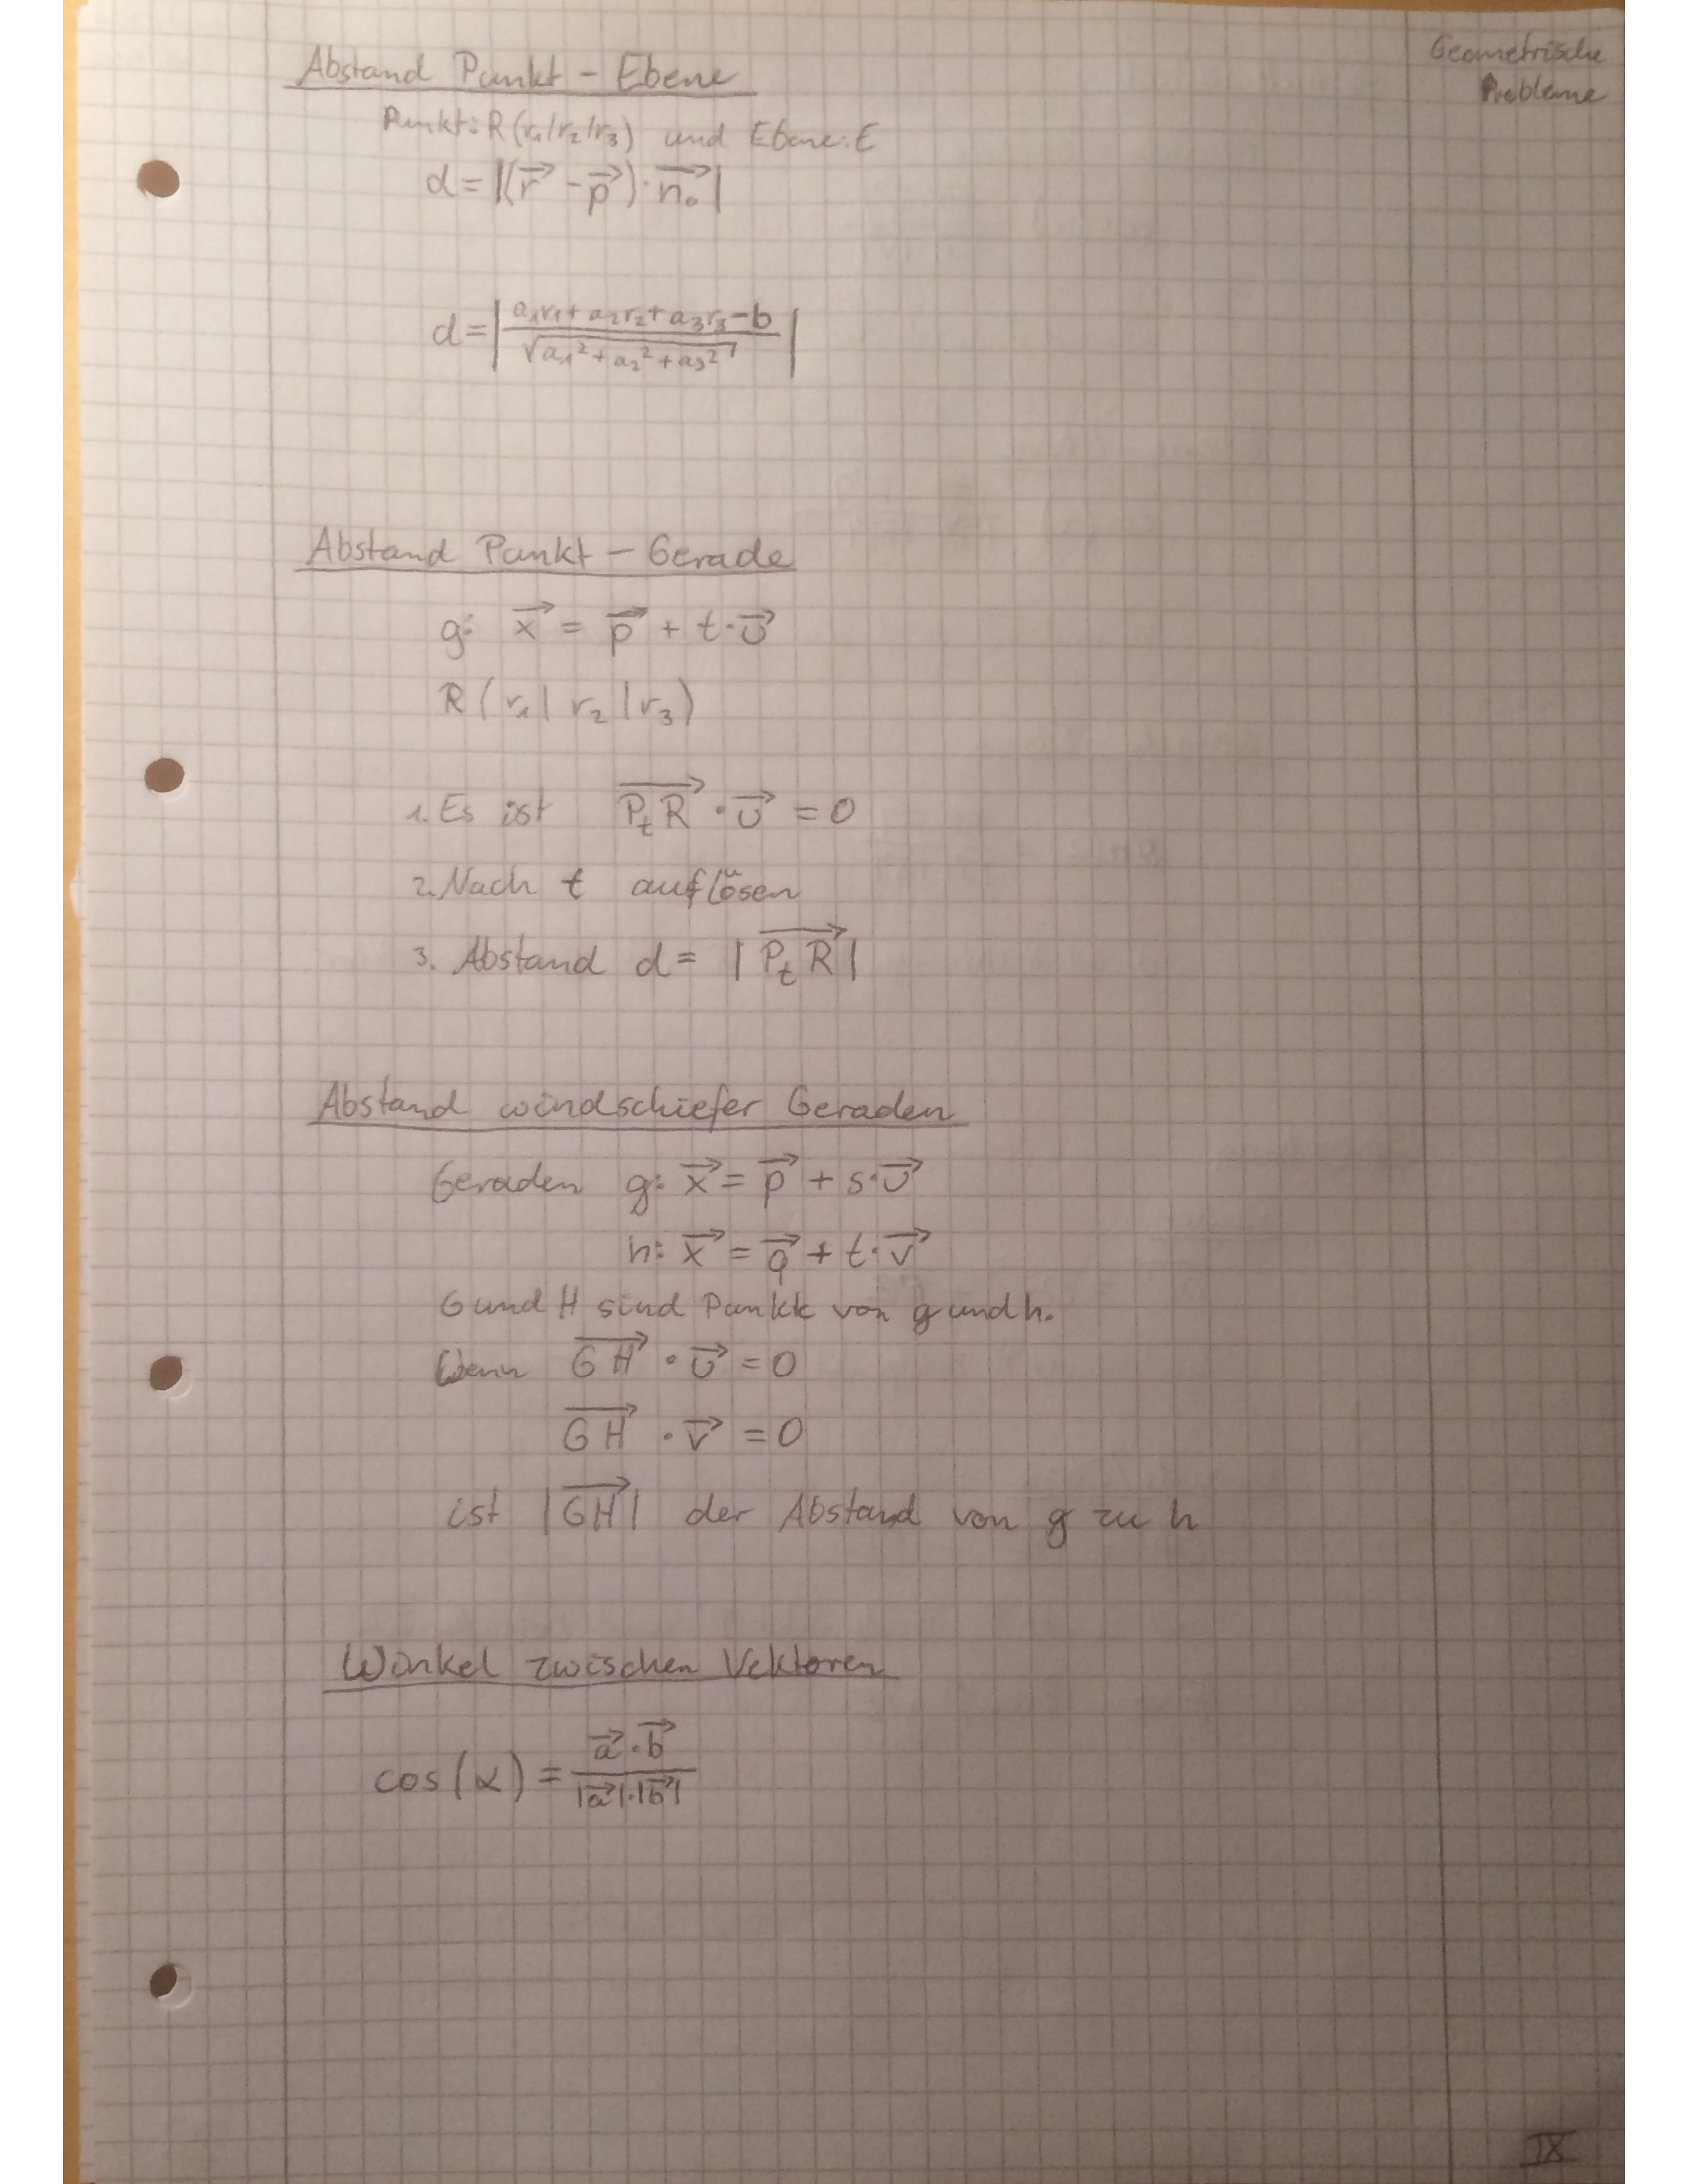 Geometrische
Probleme
Abstand Punkt – Ebene
Punkt: R(r₁|r₂|r₃) und Ebene: E
d = |(r⃗ - p⃗) · n₀⃗|
d = |(a₁r₁ + a₂r₂ + a₃r₃ - b) / √(a₁² + a₂² + a₃²)|
Abstand Punkt – Gerade
g: x⃗ = p⃗ + t · u⃗
R (r₁ | r₂ | r₃)
1. Es ist P_tR⃗ · u⃗ = 0
2. Nach t auflösen
3. Abstand d = |P_tR⃗|
Abstand windschiefer Geraden
Geraden g: x⃗ = p⃗ + s · u⃗
h: x⃗ = q⃗ + t · v⃗
G und H sind Punkte von g und h.
Wenn GH⃗ · u⃗ = 0
GH⃗ · v⃗ = 0
ist |GH⃗| der Abstand von g zu h
Winkel zwischen Vektoren
cos(α) = (a⃗ · b⃗) / (|a⃗| · |b⃗|)
IX